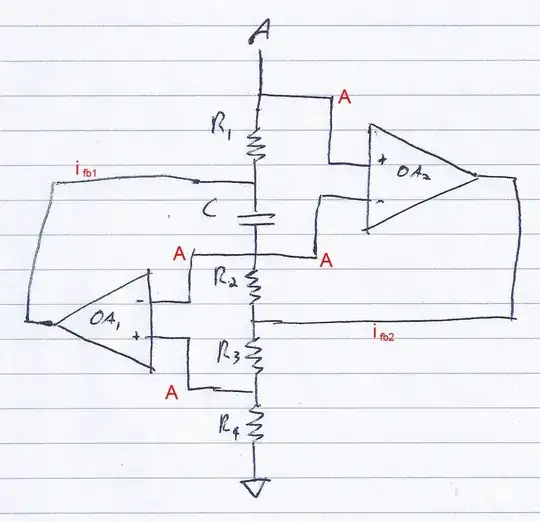 A
A
R₁
+
OA₂
-
i fb1
C
A
A
-
R₂
OA₁
+
i fb2
R₃
A
R₄